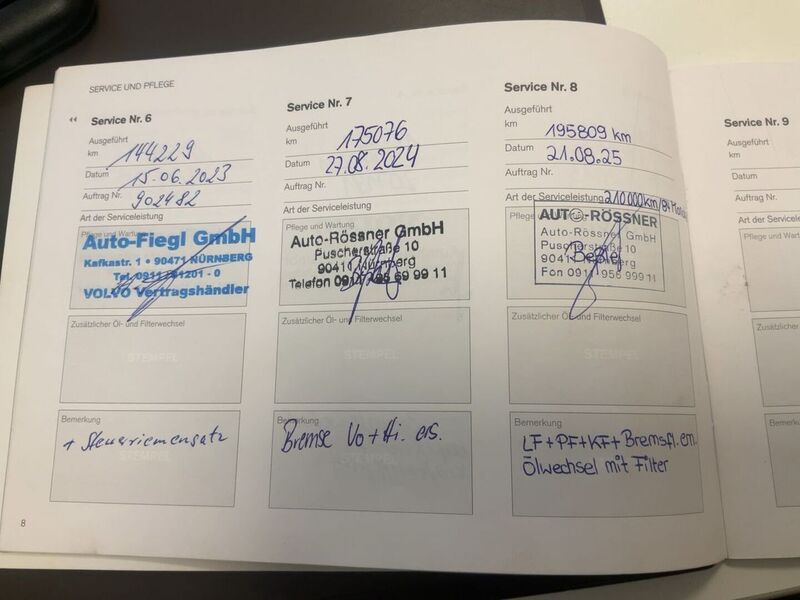 SERVICE UND PFLEGE
Service Nr. 6
Ausgeführt
km 144229
Datum 15.06.2023
Auftrag Nr. 902482
Art der Serviceleistung
Pflege und Wartung
Auto-Fiegl GmbH
Kafkastr. 1 • 90471 NÜRNBERG
Tel. 0911 1201 - 0
VOLVO Vertragshändler
Zusätzlicher Öl- und Filterwechsel
Bemerkung
+ Steuerriemensatz
STEMPEL
Service Nr. 7
Ausgeführt
km 175076
Datum 27.08.2024
Auftrag Nr.
Art der Serviceleistung
Pflege und Wartung
Auto-Rössner GmbH
Puscherstraße 10
90411 Nürnberg
Telefon 0911 95 69 99 11
Zusätzlicher Öl- und Filterwechsel
STEMPEL
Bemerkung
Bremse Vo + Hi. ers.
STEMPEL
Service Nr. 8
Ausgeführt
km 195809 km
Datum 21.08.25
Auftrag Nr.
Art der Serviceleistung 210.000km/84
Pflege
AUTO-RÖSSNER
Auto-Rössner GmbH
Puscherstraße 10
90411 Nürnberg
Fon 0911 956 999 11
Zusätzlicher Öl- und Filterwechsel
STEMPEL
Bemerkung
LF+PF+KF+Bremsfl.ern.
Ölwechsel mit Filter
Service Nr. 9
Ausgeführt
km
Datum
Auftrag Nr.
Art der Serviceleistung
Pflege und
Zusätzlicher
Bemerkung
8